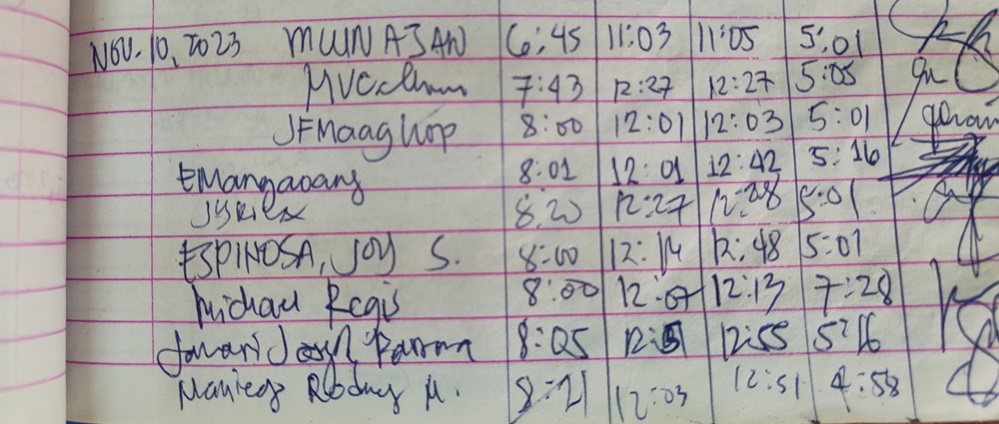 Nov. 10, 2023 MUNAJAN 6:45 11:03 11:05 5:01
7:43 12:27 12:27 5:05
JFMaaghop 8:00 12:01 12:03 5:01
EMangaoang 8:01 12:01 12:42 5:16
8:20 12:27 12:28 5:01
ESPINOSA, JOY S. 8:00 12:14 12:48 5:01
Michael Regis 8:00 12:07 12:13 7:28
8:05 12:55 5:16
Rodney M. 8:21 12:03 12:51 4:58